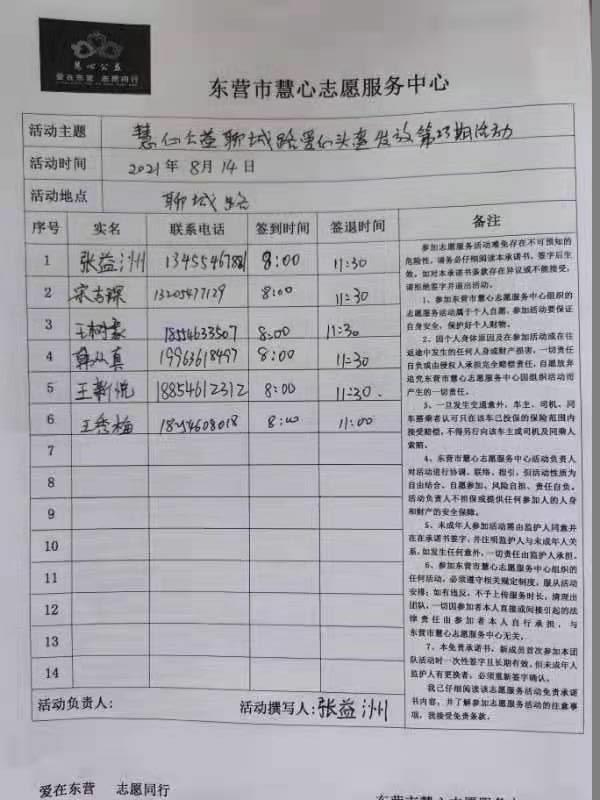 慧心公益
爱在东营 志愿同行
东营市慧心志愿服务中心
活动主题 慧心公益聊城路爱心头盔发放第23期活动
活动时间 2021年8月14日
活动地点 聊城路
序号 实名 联系电话 签到时间 签退时间 备注
1 张益洲 8:00 11:30
2 13205477129 8:00 11:30
3 王树豪 18554633507 8:00 11:30
4 19963618497 8:00 11:30
5 王新悦 18854612312 8:00 11:30.
6 王秀梅 8:00 11:00
7
8
9
10
11
12
13
14
参加志愿服务活动难免存在不可预知的
危险性,请务必仔细阅读本承诺书,签字后生
效。如对本承诺书条款存在异议或不能接受,
请拒绝签字并退出活动。
1、参加东营市慧心志愿服务中心组织的
志愿服务活动属于个人自愿,参加活动要保证
自身安全,保护好个人财物。
2、因个人身体原因及在参加活动或在往
返途中发生的任何人身或财产损害,一切责任
自负或由侵权人承担完全赔偿责任,自愿放弃
追究东营市慧心志愿服务中心因组织活动而
产生的一切责任。
3、一旦发生交通意外,车主、司机、同
车搭乘者认可只在该车已投保的保险范围内
接受赔偿,不得另行向该车主或司机及同乘人
索赔。
4、东营市慧心志愿服务中心活动负责人
对活动进行协调、联络、指引,但活动性质为
自由结合、自愿参加、风险自担、责任自负。
活动负责人不担保或提供任何参加人的人身
和财产的安全保障。
5、未成年人参加活动需由监护人同意并
在在承诺书签字,并注明监护人与未成年人关
系,如发生任何意外,一切责任由监护人承担。
6、参加东营市慧心志愿服务中心组织的
任何活动,必须遵守相关规定制度,服从活动
安排;如有违反,不予上传服务时长,清理出
团队,一切因参加者本人直接或间接引起的法
律责任由参加者本人自行承担,与
东营市慧心志愿服务中心无关。
7、本免责承诺书,新成员首次参加本团
队活动时一次性签字且长期有效,但未成年人
监护人有更换者,必须重新签字确认。
我已仔细阅读该志愿服务活动免责承诺
书内容,并了解参加志愿服务活动的注意事
项,我接受免责条款。
活动负责人: 活动撰写人:张益洲
爱在东营 志愿同行
东营市慧心志愿服务中心